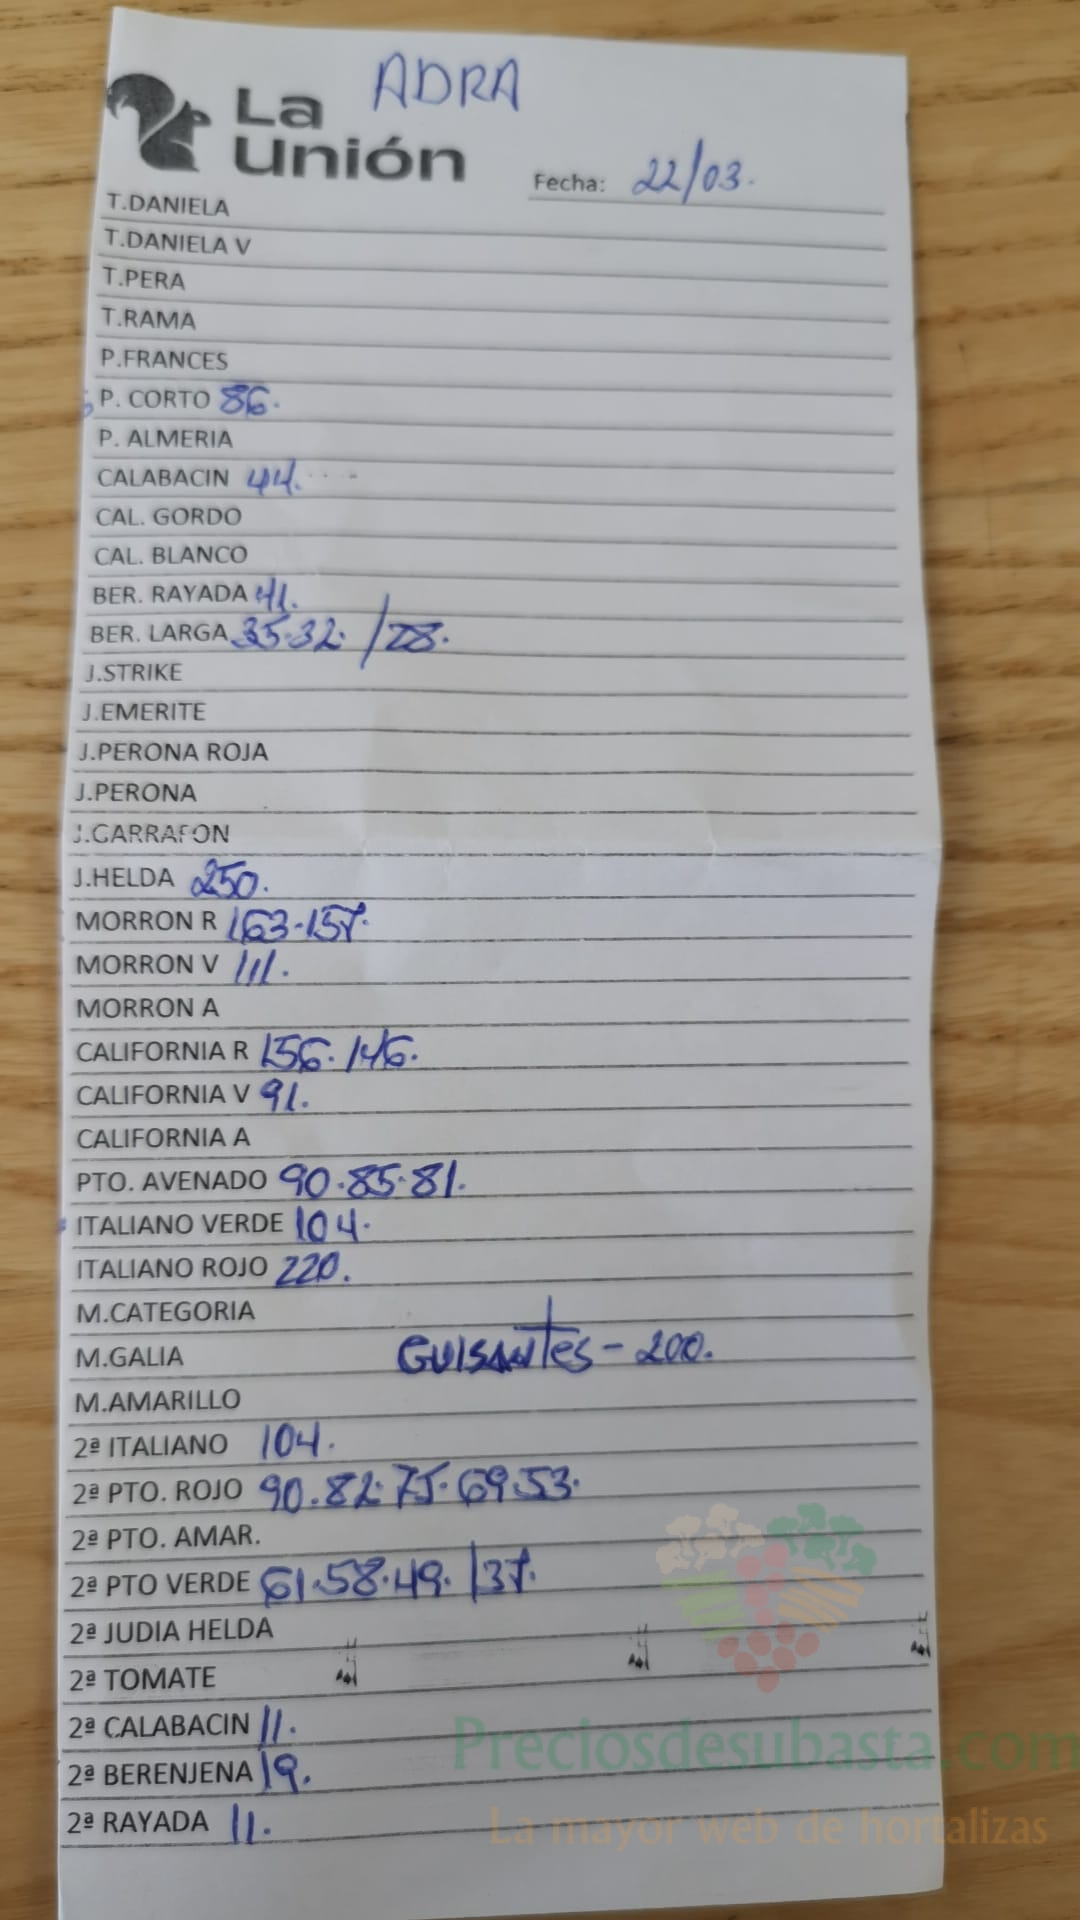 ADRA
La
Unión
Fecha: 22/03.
T.DANIELA
T.DANIELA V
T.PERA
T.RAMA
P.FRANCES
P. CORTO 86.
P. ALMERIA
CALABACIN 44.
CAL. GORDO
CAL. BLANCO
BER. RAYADA 41.
BER. LARGA 35.32. /28.
J.STRIKE
J.EMERITE
J.PERONA ROJA
J.PERONA
J.GARRAFON
J.HELDA 250.
MORRON R 163.157.
MORRON V 111.
MORRON A
CALIFORNIA R 156.146.
CALIFORNIA V 91.
CALIFORNIA A
PTO. AVENADO 90.85.81.
ITALIANO VERDE 104.
ITALIANO ROJO 220.
M.CATEGORIA
M.GALIA GUISANTES - 200.
M.AMARILLO
2ª ITALIANO 104.
2ª PTO. ROJO 90.82.75.69.53.
2ª PTO. AMAR.
2ª PTO VERDE 61.58.49. /37.
2ª JUDIA HELDA
2ª TOMATE
2ª CALABACIN 11.
2ª BERENJENA 19.
2ª RAYADA 11.
Preciosdesubasta.com
La mayor web de hortalizas